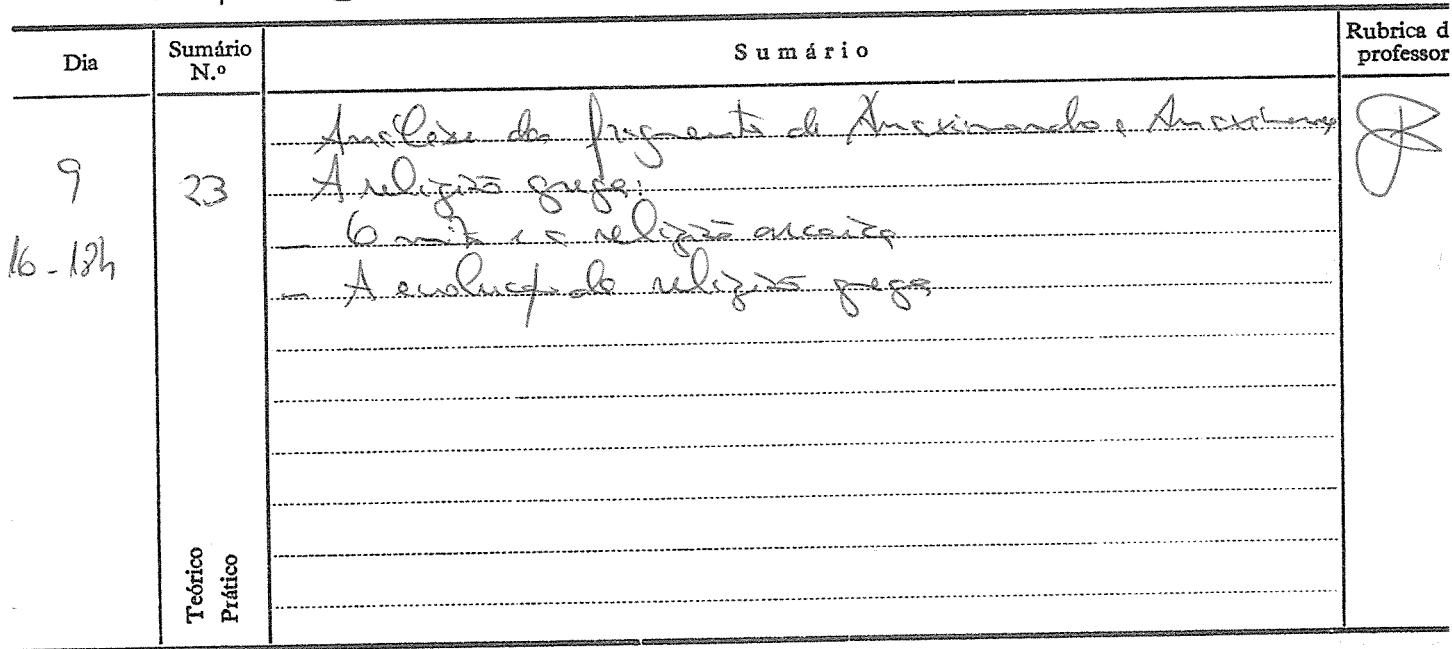 Dia
Sumário N.º
Sumário
Rubrica d
professor
9
16-18h
23
Análise do fragmento de Anaximandro e Anaxímenes
A religião grega:
— O mito e a religião arcaica
— A evolução da religião grega
Teórico
Prático